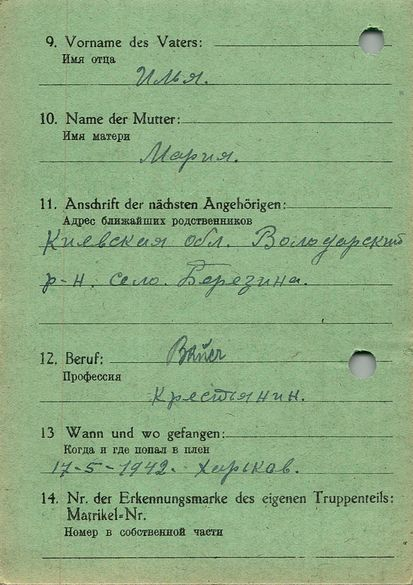 9. Vorname des Vaters:
Имя отца
Илья.
10. Name der Mutter:
Имя матери
Мария.
11. Anschrift der nächsten Angehörigen:
Адрес ближайших родственников
Киевская обл. Володарский
р-н. село. Березина.
12. Beruf:
Профессия
Крестьянин.
13 Wann und wo gefangen:
Когда и где попал в плен
17-5-1942. Харьков.
14. Nr. der Erkennungsmarke des eigenen Truppenteils:
Matrikel-Nr.
Номер в собственной части